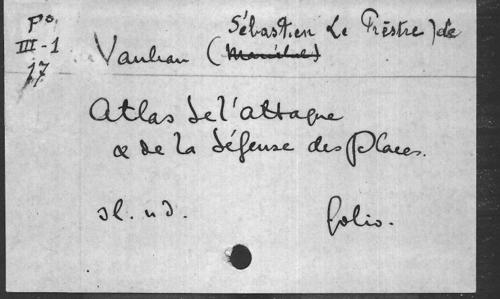 Pº
III-1
17
Sébastien Le Prêstre) de
Vauban (Maréchal)
Atlas de l'attaque
& de la défense des Places.
sl. nd.
folio.